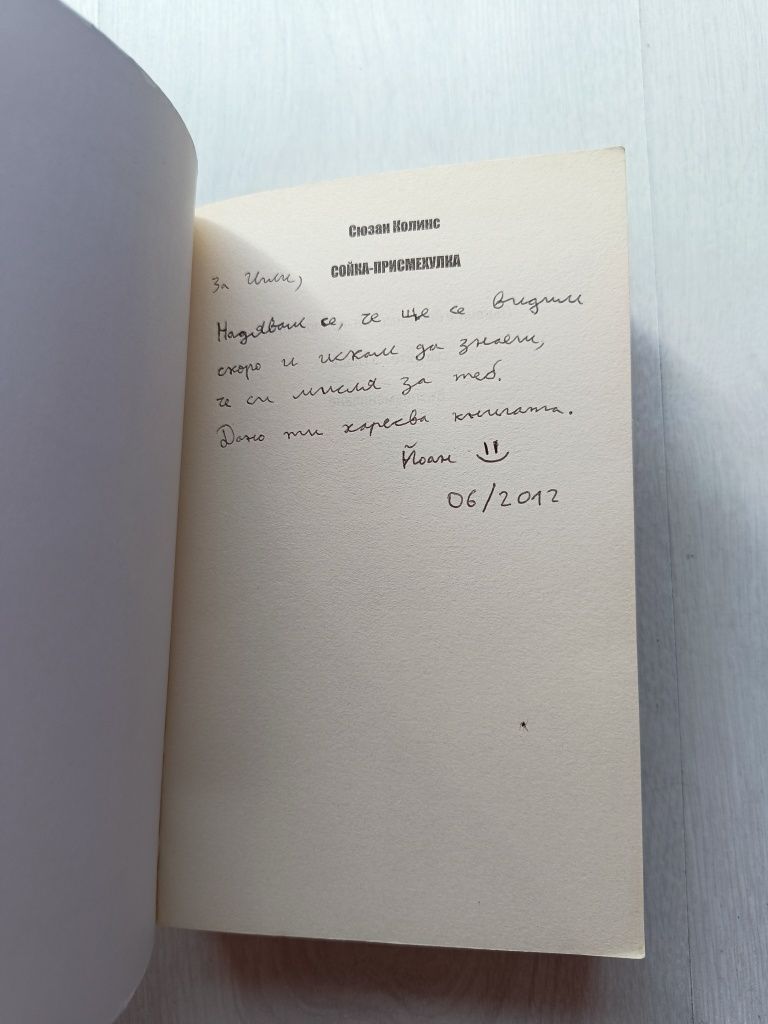 Сюзан Колинс
СОЙКА-ПРИСМЕХУЛКА
За Или,
Надявам се, че ще се видим
скоро и искам да знаеш,
че си мисля за теб.
Дано ти харесва книгата.
Йоан
06/2012